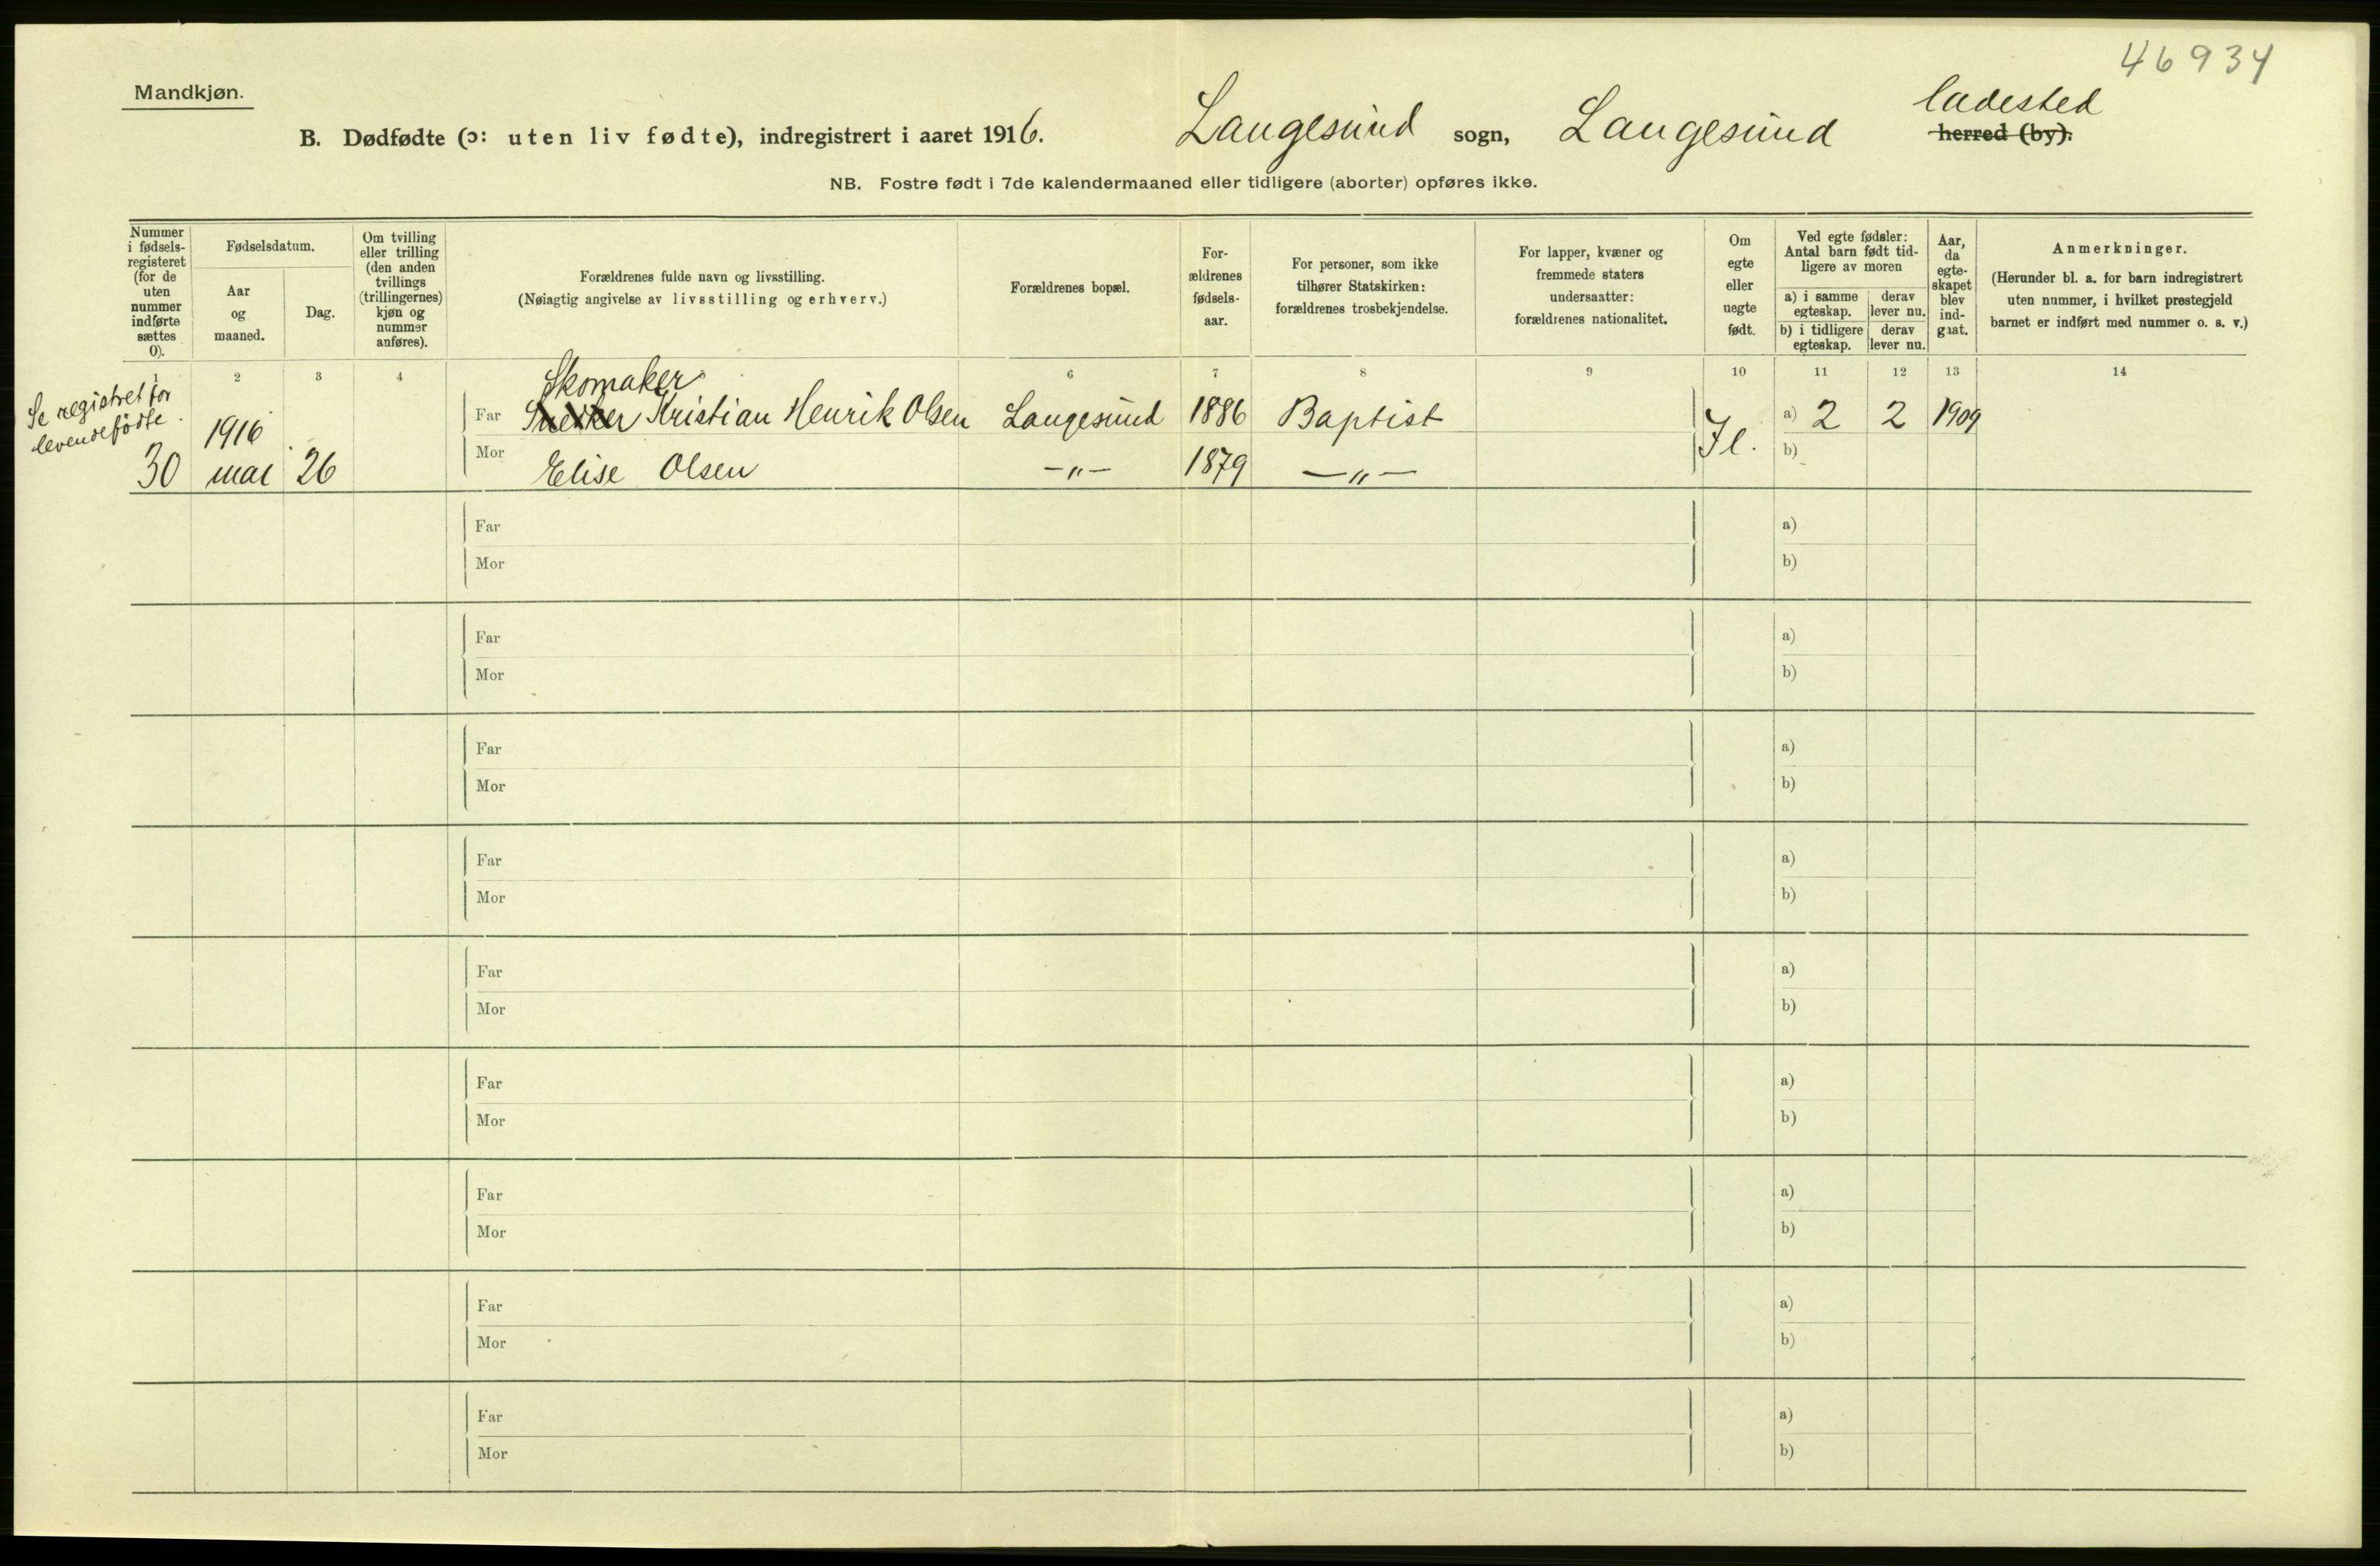 46934
Mandkjøn.
B. Dødfødte (ɔ: uten liv fødte), indregistrert i aaret 1916. Langesund sogn, Langesund ladested herred (by).
NB. Fostre født i 7de kalendermaaned eller tidligere (aborter) opføres ikke.
Nummer i fødsels-registeret (for de uten nummer indførte sættes 0).
Fødselsdatum.
Aar og maaned.
Dag.
Om tvilling eller trilling (den anden tvillings (trillingernes) kjøn og nummer anføres).
Forældrenes fulde navn og livsstilling.
(Nøiagtig angivelse av livsstilling og erhverv.)
Forældrenes bopæl.
For-ældrenes fødsels-aar.
For personer, som ikke tilhører Statskirken: forældrenes trosbekjendelse.
For lapper, kvæner og fremmede staters undersaatter: forældrenes nationalitet.
Om egte eller uegte født.
Ved egte fødsler: Antal barn født tid-ligere av moren
a) i samme egteskap.
derav lever nu.
b) i tidligere egteskap.
derav lever nu.
Aar, da egte-skapet blev ind-gaat.
Anmerkninger.
(Herunder bl. a. for barn indregistrert uten nummer, i hvilket prestegjeld barnet er indført med nummer o. s. v.)
1 2 3 4 6 7 8 9 10 11 12 13 14
Se registret for
levendefødte.
Skomaker
1916 Far Snedker Kristian Henrik Olsen Langesund 1886 Baptist a) 2 2 1909
30 mai 26 Mor Elise Olsen —"— 1879 —"— b)
Far a)
Mor b)
Far a)
Mor b)
Far a)
Mor b)
Far a)
Mor b)
Far a)
Mor b)
Far a)
Mor b)
Far a)
Mor b)
Far a)
Mor b)
Far a)
Mor b)